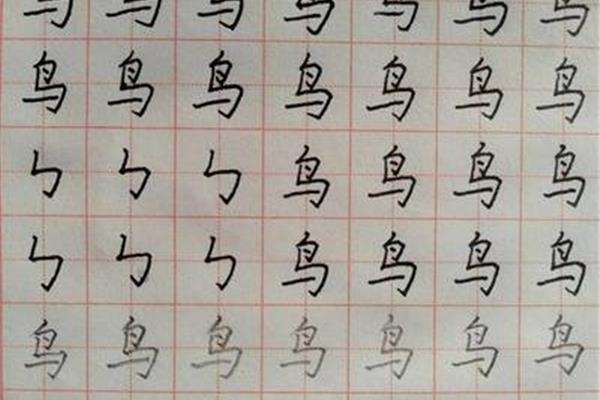 鸟鸟鸟鸟鸟鸟鸟
鸟鸟鸟鸟鸟鸟鸟
ㄅㄅㄅ鸟鸟鸟鸟
ㄅㄅㄅ鸟鸟鸟鸟
鸟鸟鸟鸟鸟鸟鸟